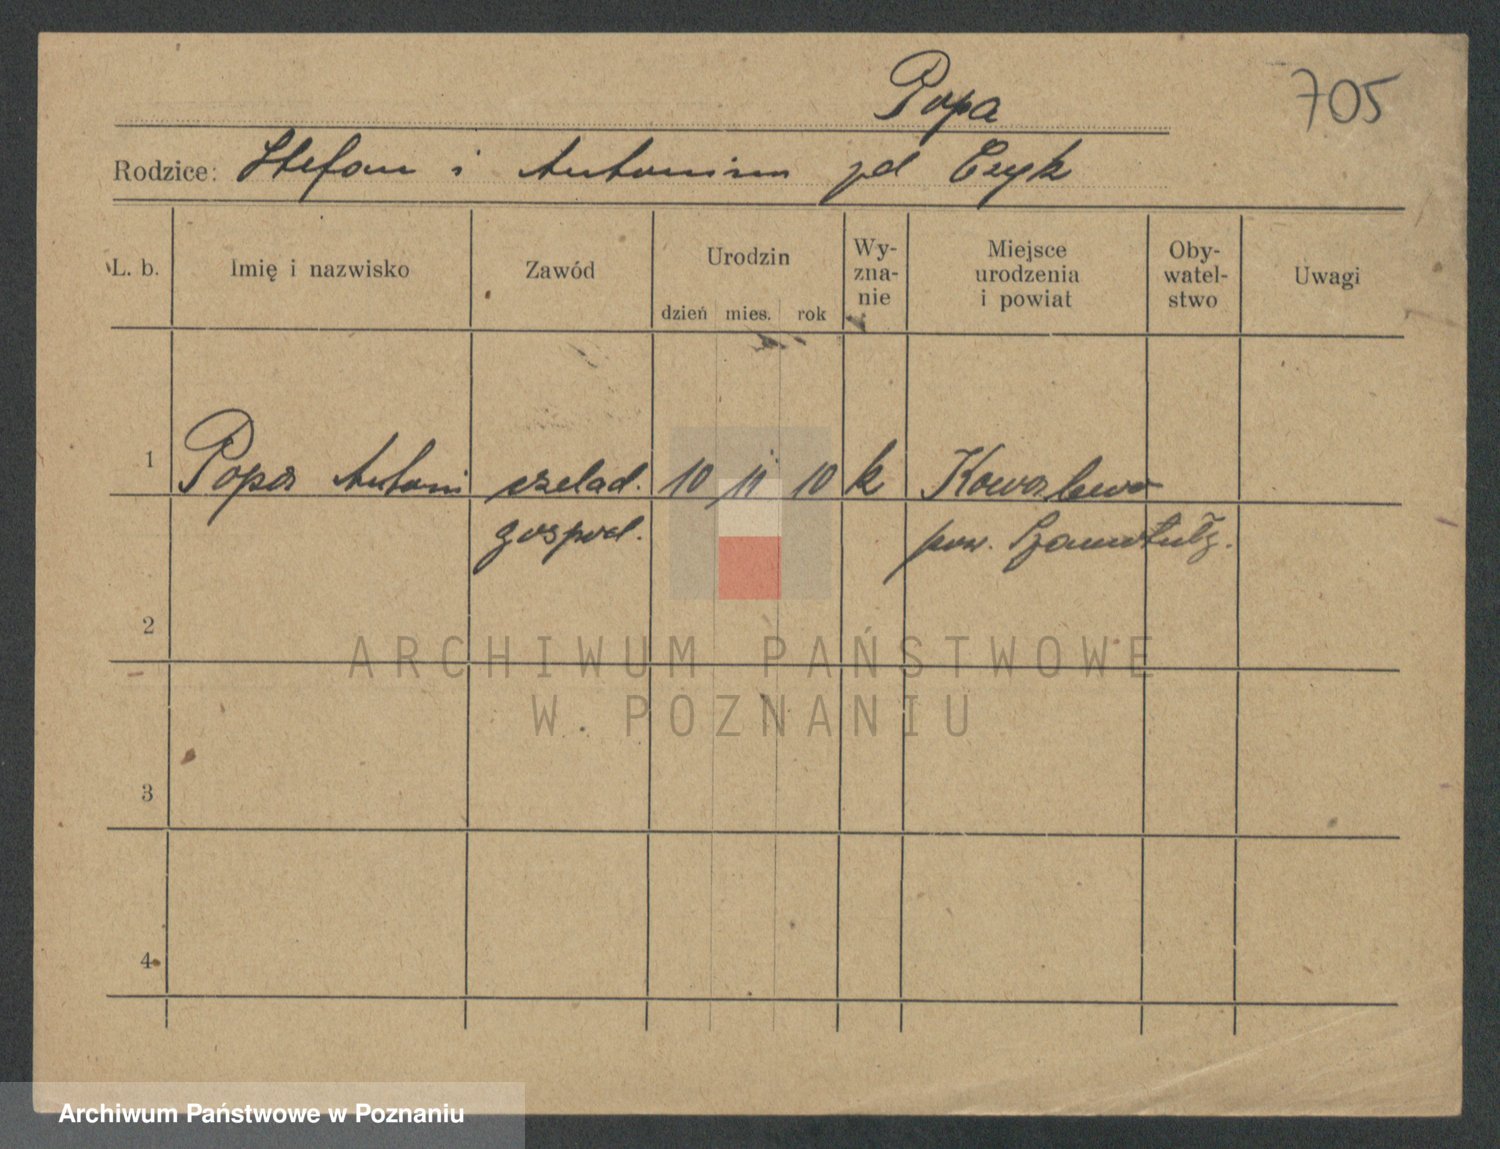 Popa
705
Rodzice: Stefan i Antonina zd Czyk
L. b.
Imię i nazwisko
Zawód
Urodzin
dzień mies. rok
Wy-
zna-
nie
Miejsce
urodzenia
i powiat
Oby-
watel-
stwo
Uwagi
1 Popa Antoni czelad. 10 11 10 k Kowalewo
gospod. pow.
2
3
4
ARCHIWUM PAŃSTWOWE
W POZNANIU
Archiwum Państwowe w Poznaniu